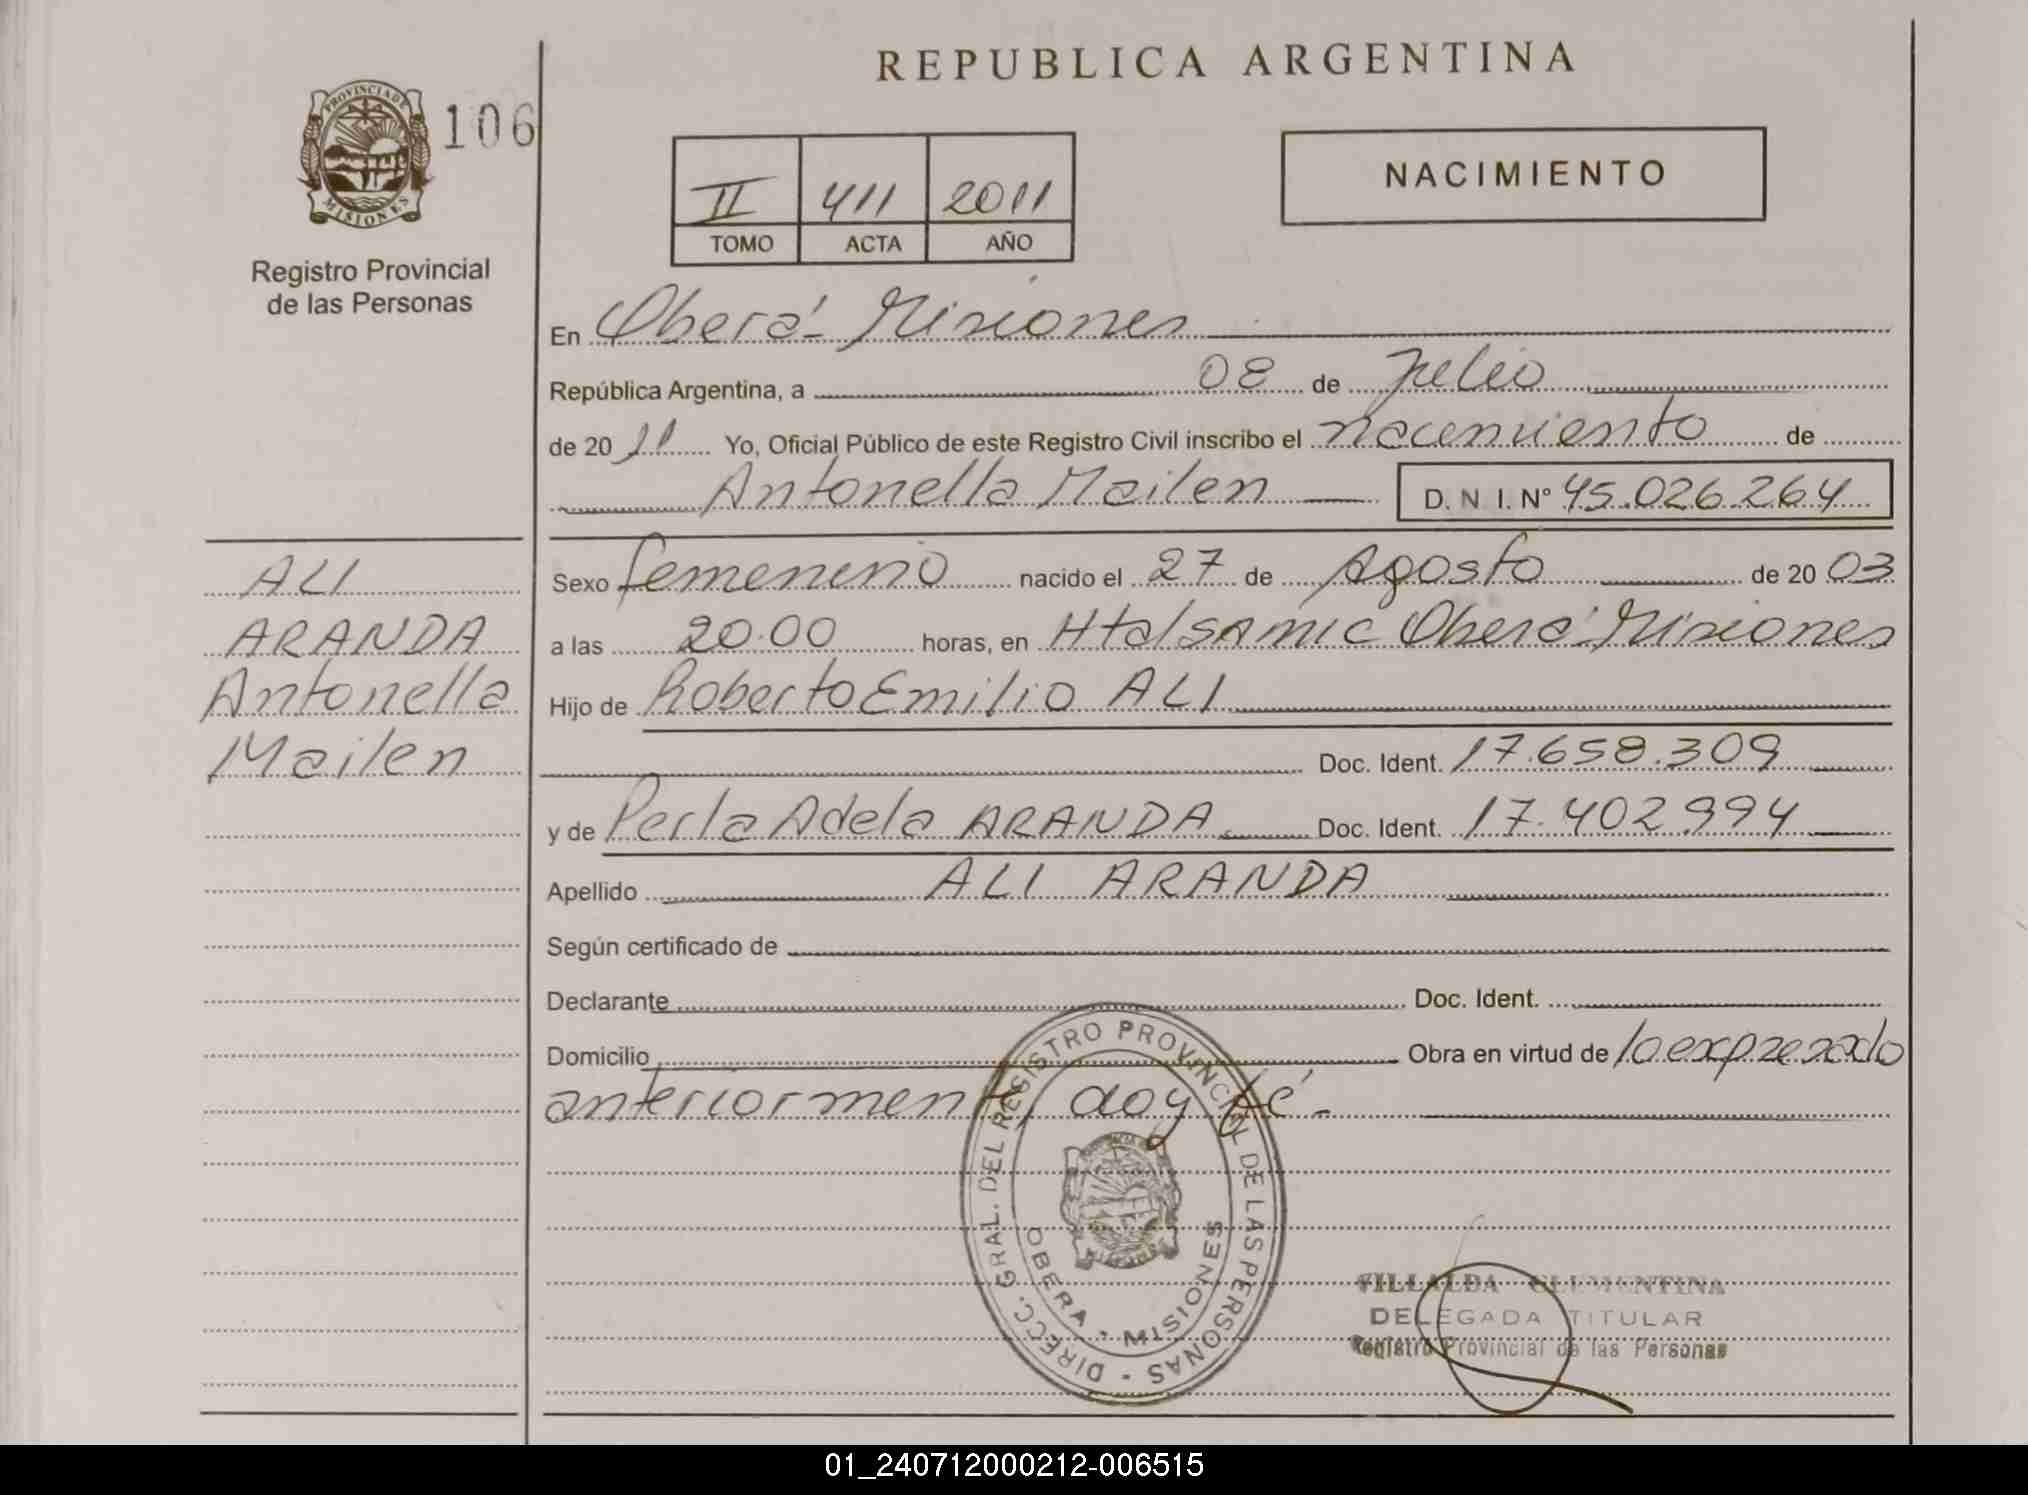 REPUBLICA ARGENTINA
PROVINCIA DE
MISIONES
106
Registro Provincial
de las Personas
II 411 2011
TOMO ACTA AÑO
NACIMIENTO
En Oberá - Misiones
República Argentina, a 08 de Julio
de 2011 Yo, Oficial Público de este Registro Civil inscribo el nacimiento de
Antonella Mailen D. N. I. Nº 45.026.264
ALI
ARANDA
Antonella
Mailen
Sexo femenino nacido el 27 de Agosto de 2003
a las 20.00 horas, en Htal SAMIC Oberá - Misiones
Hijo de Roberto Emilio ALI
Doc. Ident. 17.658.309
y de Perla Adela ARANDA Doc. Ident. 17.402.994
Apellido ALI ARANDA
Según certificado de
Declarante Doc. Ident.
Domicilio Obra en virtud de lo expresado
anteriormente, doy fé.-
DIRECC. GRAL. DEL REGISTRO PROVINCIAL DE LAS PERSONAS -
OBERA - MISIONES
VILLALBA CLEMENTINA
DELEGADA TITULAR
Registro Provincial de las Personas
01_240712000212-006515